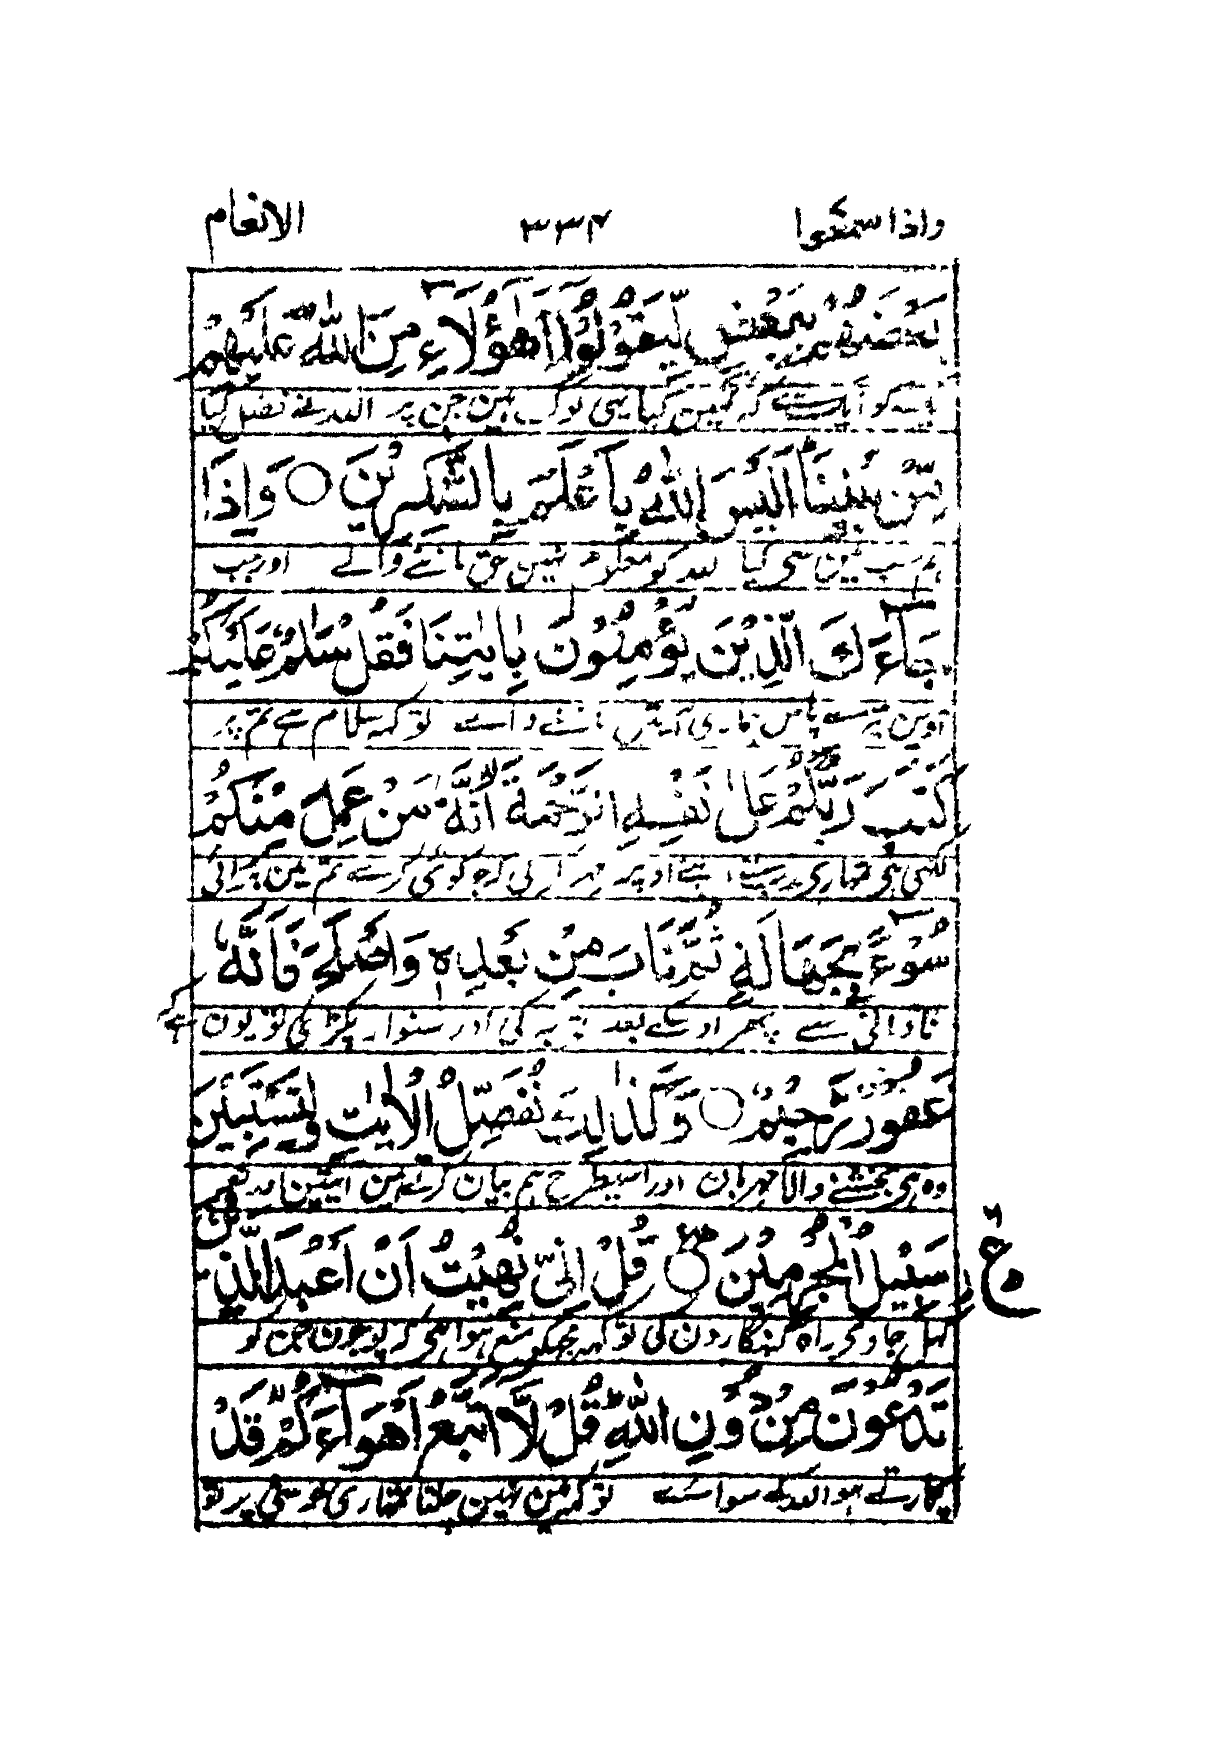 واذا سمعوا ۳۳۴ الانعام
بَعْضَهُمْ بِبَعْضٍ لِّيَقُوْلُوْٓا اَهٰٓؤُلَآءِ مِنَّ اللّٰهُ عَلَيْهِمْ
ایک کو ایک سے کہ کہین کیا یہی لوگ ہین جن پر اللہ نے فضل کیا
مِّنْ بَيْنِنَا اَلَيْسَ اللّٰهُ بِاَعْلَمَ بِالشّٰكِرِيْنَ ○ وَاِذَا
ہم سب مین سی کیا اللہ کو معلوم نہین حق ماننے والے اور جب
جَآءَكَ الَّذِيْنَ يُؤْمِنُوْنَ بِاٰيٰتِنَا فَقُلْ سَلٰمٌ عَلَيْكُمْ
آوین تیرے پاس ہماری آیتین ماننے والے تو کہہ سلام ہے تم پر
كَتَبَ رَبُّكُمْ عَلٰى نَفْسِهِ الرَّحْمَةَ لا اَنَّهٗ مَنْ عَمِلَ مِنْكُمْ
لکھی ہی تمہاری رب نے اپنے اوپر مہر کرنی کہ جو کوئی کرے تم مین برائی
سُوْٓءًۢا بِجَهَالَةٍ ثُمَّ تَابَ مِنْۢ بَعْدِهٖ وَاَصْلَحَ فَاَنَّهٗ
نادانی سے پھر اوسکے بعد توبہ کی اور سنوار پکڑی تو یون ہے کہ
غَفُوْرٌ رَّحِيْمٌ ○ وَكَذٰلِكَ نُفَصِّلُ الْاٰيٰتِ وَلِتَسْتَبِيْنَ
وہ ہی بخشنے والا مہربان اور اسیطرح ہم بیان کرتے ہین آیتین اور
سَبِيْلُ الْمُجْرِمِيْنَ ○ ع قُلْ اِنِّيْ نُهِيْتُ اَنْ اَعْبُدَ الَّذِيْنَ
کھل جاوی راہ گنہگارون کی تو کہہ مجھکو منع ہوا ہی کہ پوجون جن کو
تَدْعُوْنَ مِنْ دُوْنِ اللّٰهِ قُلْ لَّآ اَتَّبِعُ اَهْوَآءَكُمْ قَدْ
پکارتے ہو اللہ کے سوائے تو کہہ مین نہین چلتا تمہاری خوشی پر تو